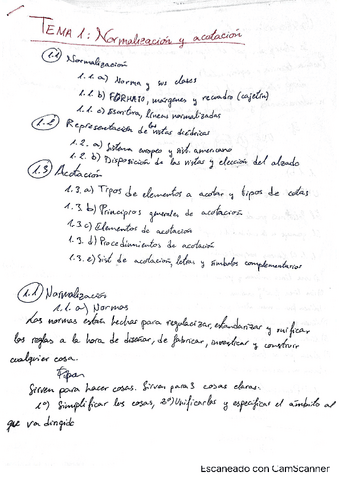 TEMA 1: Normalización y acotación
1.1 Normalización
1.1.a) Norma y sus clases
1.1.b) FORMATO, márgenes y recuadro (cajetín)
1.1.c) Escritura, líneas normalizadas
1.2 Representación de las vistas diédricas
1.2.a) Sistema europeo y sist. americano
1.2.b) Disposición de las vistas y elección del alzado
1.3 Acotación
1.3.a) Tipos de elementos a acotar y tipos de cotas
1.3.b) Principios generales de acotación
1.3.c) Elementos de acotación
1.3.d) Procedimientos de acotación
1.3.e) Sist de acotación, letras y símbolos complementarios
1.1) Normalización
1.1.a) Normas
Las normas están hechas para regularizar, estandarizar y unificar
las reglas a la hora de diseñar, de fabricar, investigar y construir
cualquier cosa.
Sirven para hacer cosas. Sirven para 3 cosas claras.
1º) Simplificar las cosas, 2º) Unificarlas y especificar el ámbito al
que va dirigido
Escaneado con CamScanner